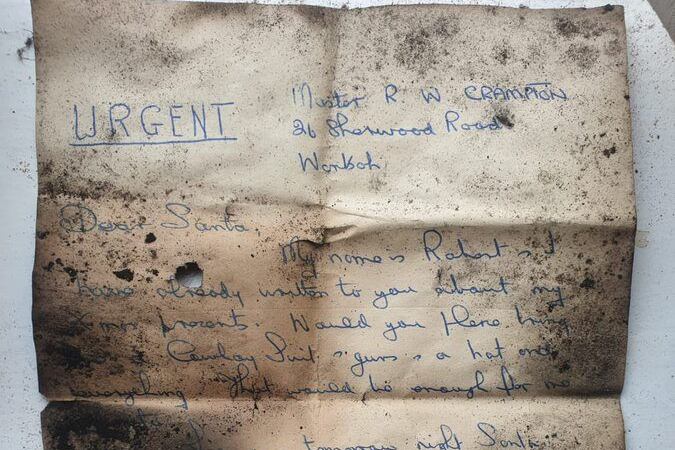 URGENT
Master R W CRAMPTON
26 Sherwood Road
Worksop
Dear Santa,
My name is Robert & I
have already written to you about my
X-mas presents. Would you please bring
a Cowboy Suit & guns & a hat and
everything. That would be enough for me
tomorrow night Santa